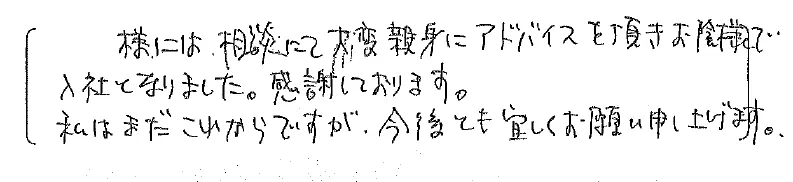 様には、相談にて大変親身にアドバイスを頂きお陰様で
入社となりました。感謝しております。
私はまだこれからですが、今後とも宜しくお願い申し上げます。